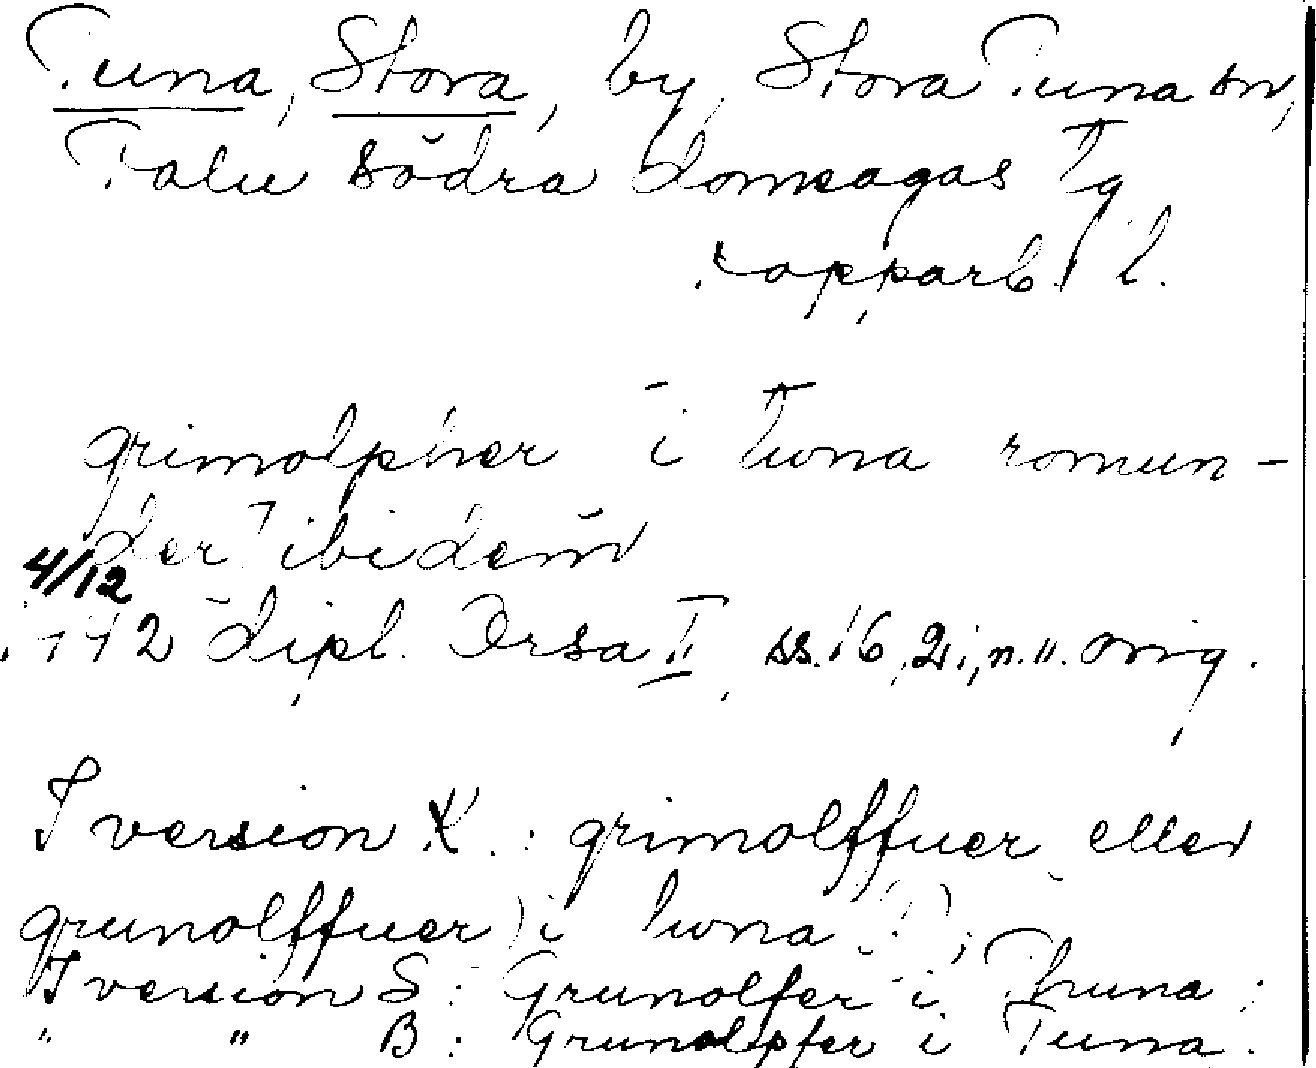 Tuna, Stora, by, Stora Tuna sn,
Falu södra domsagas Tg
Kopparb. l.
grimolpher i tuna romun-
der ibidem
4/12
1442 Dipl. Orsa II, ss. 16, 21, n. 11. orig.
I version X: grimolffuer eller
grunolffuer) i tuna (?);
I version S: Grunolfer i Thuna;
" " B: Grunolpfer i Tuna.